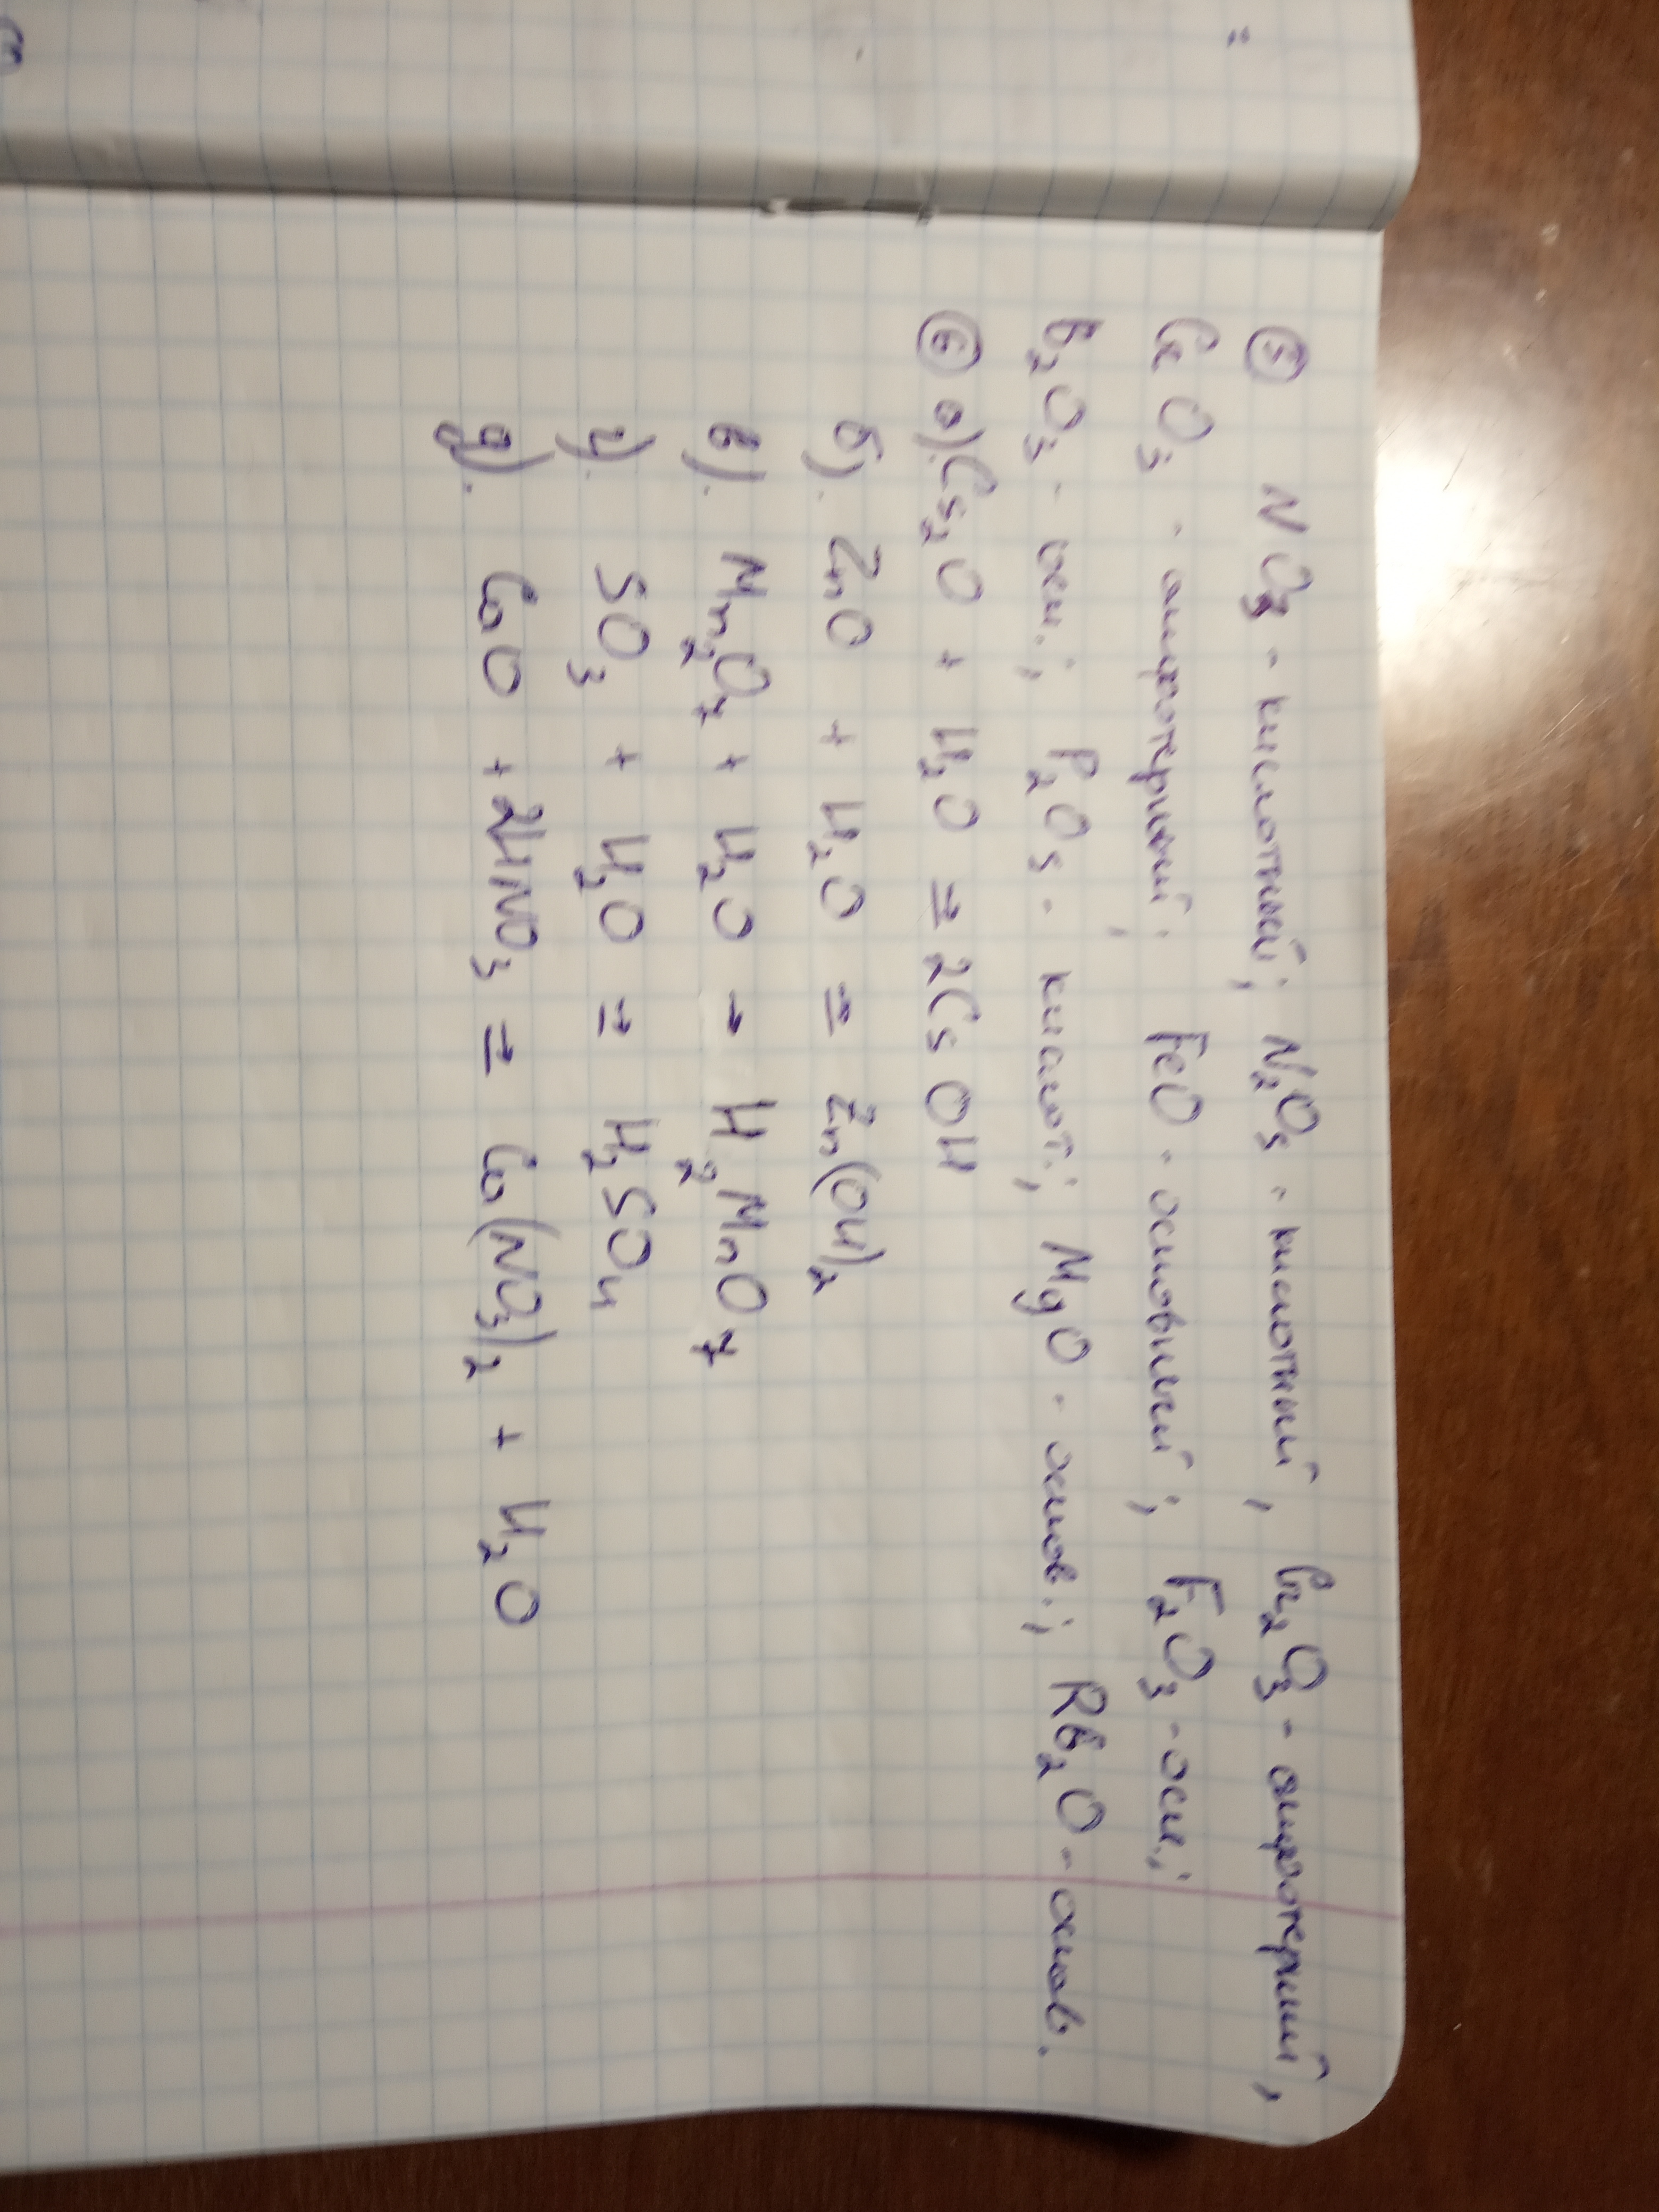 ⑤ NO₃ - кислотный; N₂O₅ - кислотный, Cr₂O₃ - амфотерный,
CrO₃ - амфотерный; FeO - основный; F₂O₃ - осн.;
B₂O₃ - осн.; P₂O₅ - кислот.; MgO - основ.; Rb₂O - основ.
⑥ а). Cs₂O + H₂O ⇒ 2CsOH
б). ZnO + H₂O = Zn(OH)₂
в). Mn₂O₇ + H₂O → H₂MnO₇
г). SO₃ + H₂O ⇒ H₂SO₄
д). CoO + 2HNO₃ ⇒ Co(NO₃)₂ + H₂O